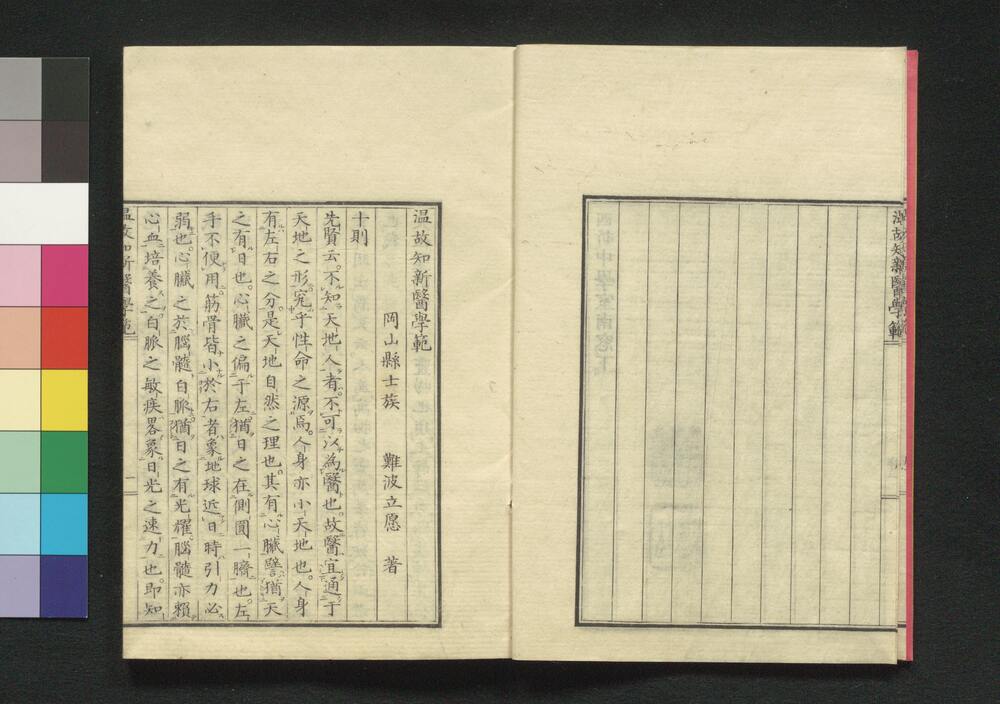 溫故知新醫學範
温故知新醫學範
岡山縣士族　難波立愿　著
十則
先賢云。不知天地人者。不可以為醫也。故醫宜通于
天地之形。究乎性命之源焉。人身亦小天地也。人身
有左右之分。是天地自然之理也。其有心臟譬猶天
之有日也。心臟之偏于左。猶日之在側圓一臍也。左
手不便用。筋骨皆小於右者。象地球近日時引力必
弱也。心臟之於腦髓白脈。猶日之有光耀。腦髓亦賴
心血培養之。白脈之敏疾。畧象日光之速力也。即知
温故知新醫學範　一